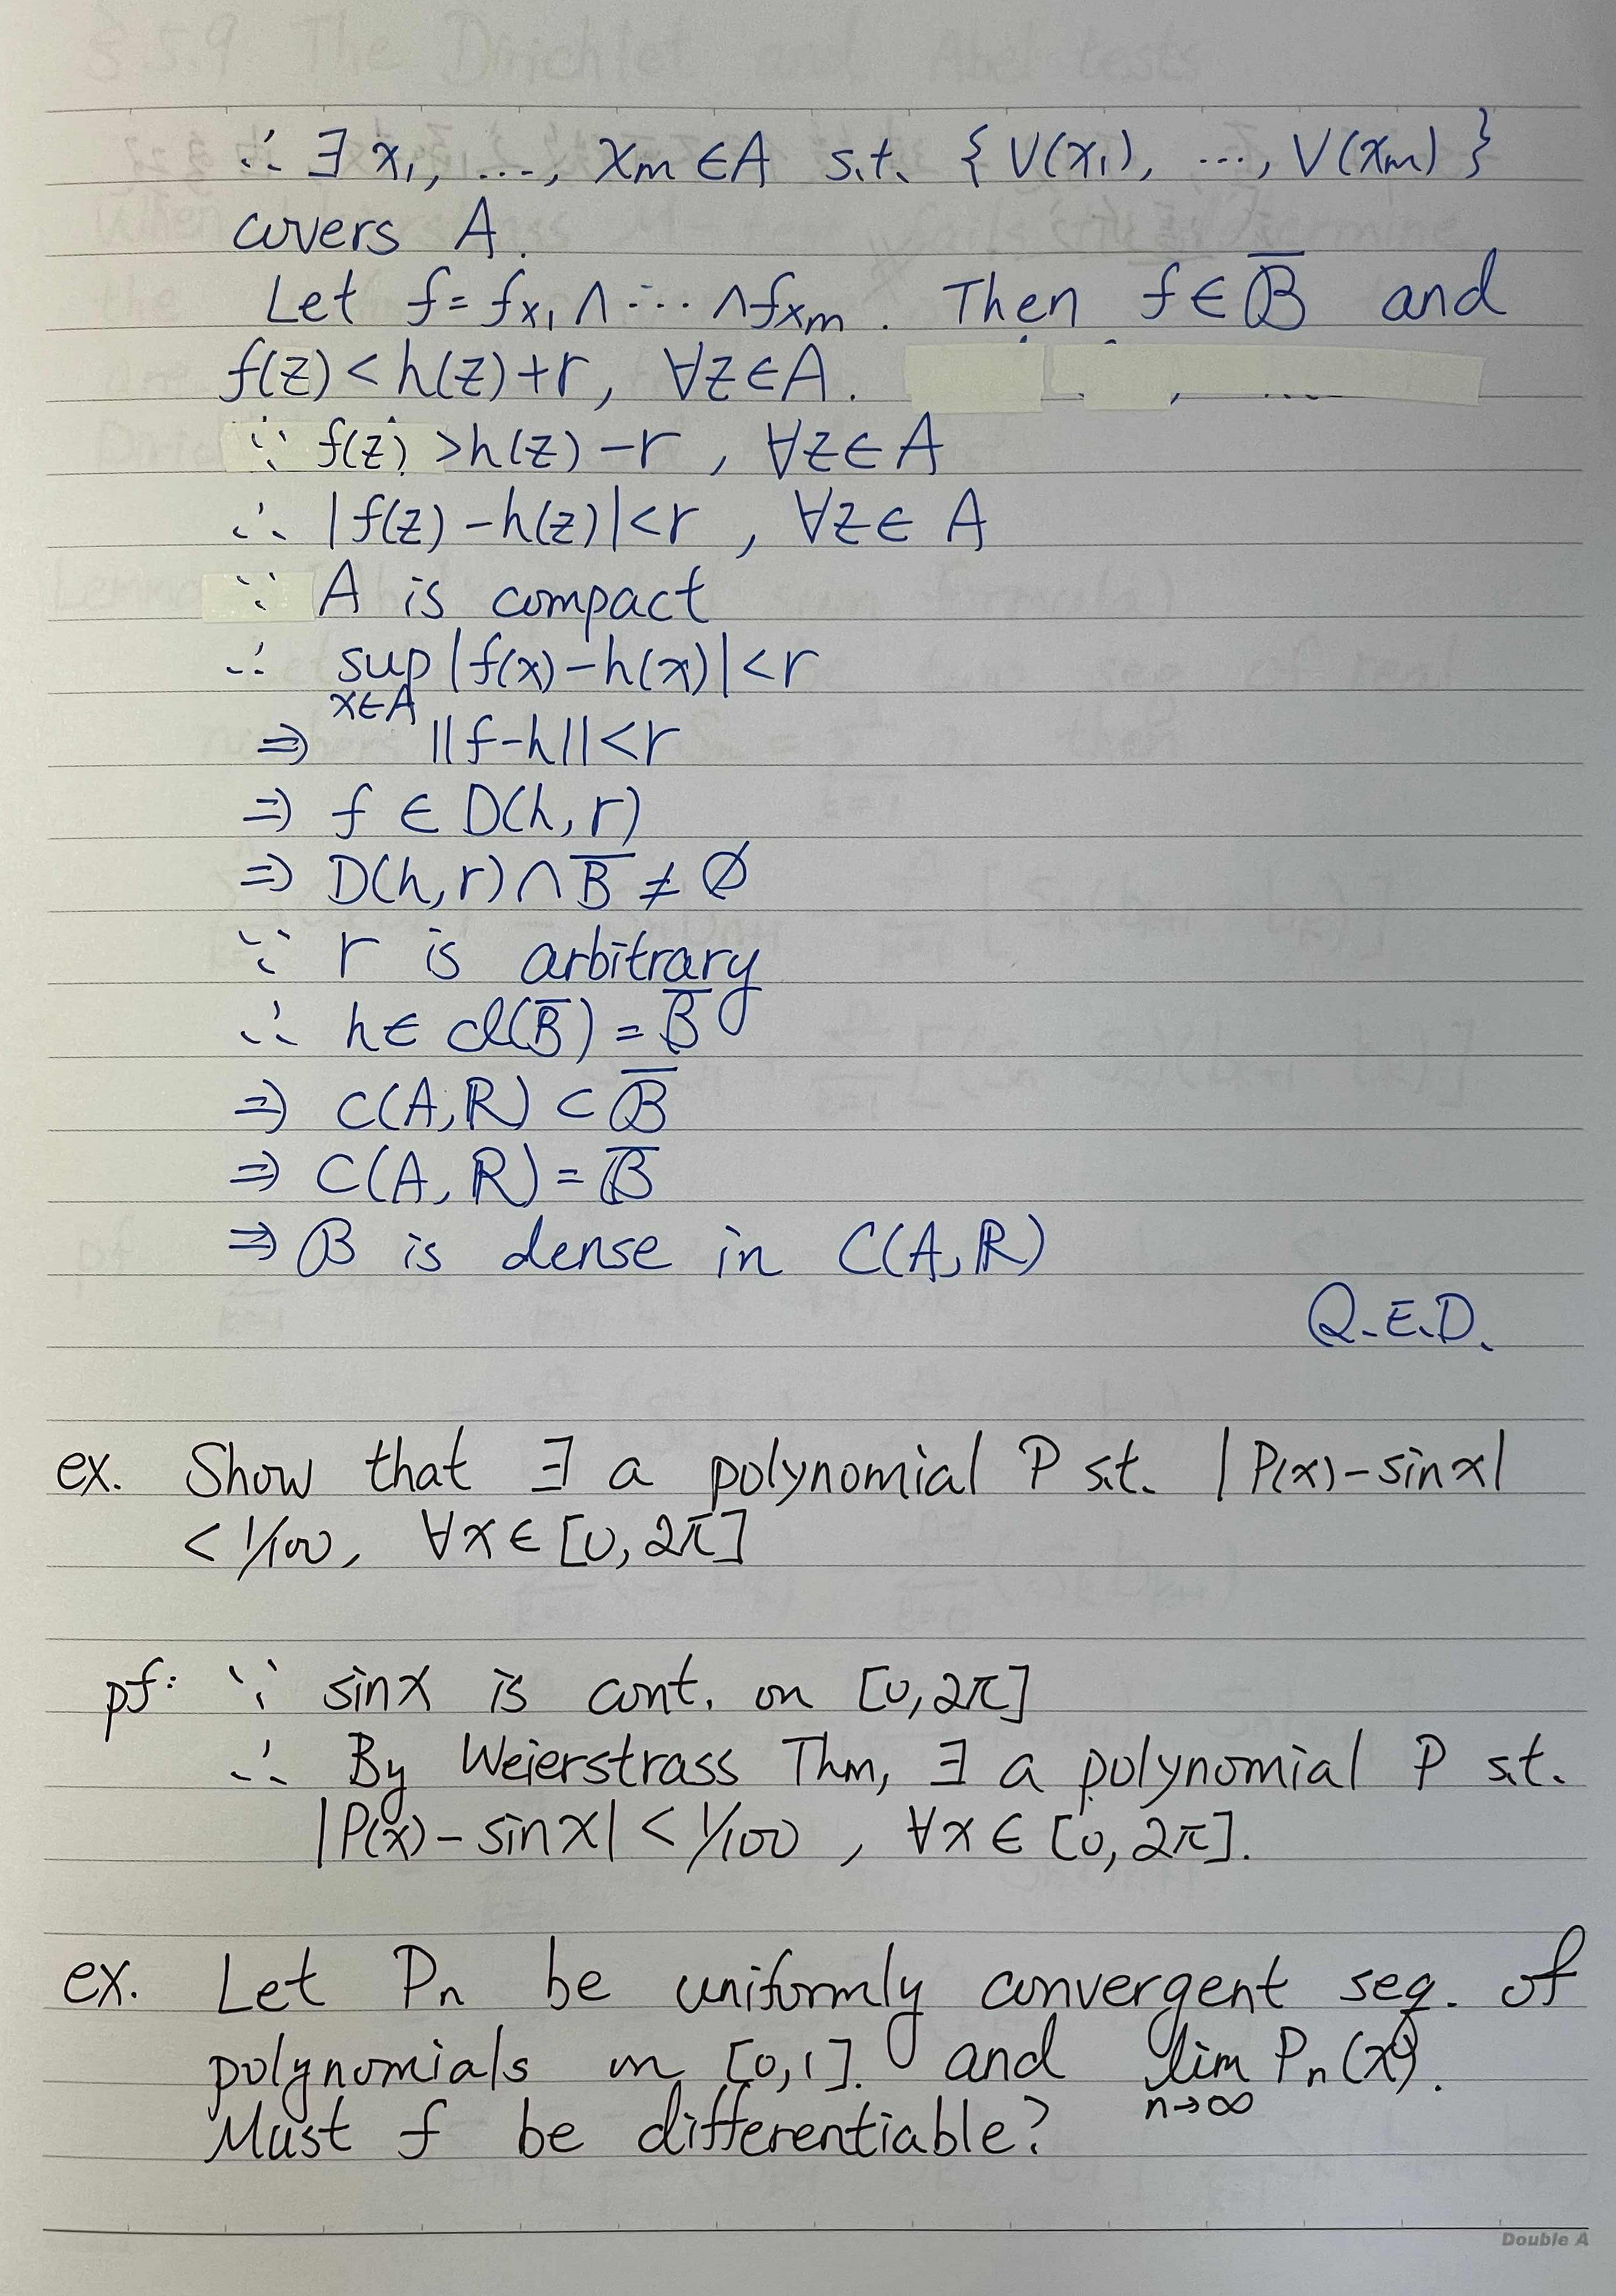 ∴ ∃ x₁, ..., xₘ ∈ A s.t. { V(x₁), ..., V(xₘ) }
covers A.
Let f = fx₁ ∧ ··· ∧ fxₘ. Then f ∈ B̅ and
f(z) < h(z) + r, ∀z ∈ A.
∵ f(z) > h(z) − r, ∀z ∈ A
∴ |f(z) − h(z)| < r, ∀z ∈ A
∵ A is compact
∴ sup |f(x) − h(x)| < r
x∈A
⇒ ||f−h|| < r
⇒ f ∈ D(h, r)
⇒ D(h, r) ∩ B̅ ≠ ∅
∵ r is arbitrary
∴ h ∈ cl(B̅) = B̅
⇒ C(A, ℝ) ⊂ B̅
⇒ C(A, ℝ) = B̅
⇒ B is dense in C(A, ℝ)
Q.E.D.
ex. Show that ∃ a polynomial P s.t. |P(x) − sinx|
< 1/100, ∀x ∈ [0, 2π]
pf: ∵ sinx is cont. on [0, 2π]
∴ By Weierstrass Thm, ∃ a polynomial P s.t.
|P(x) − sinx| < 1/100, ∀x ∈ [0, 2π].
ex. Let Pn be uniformly convergent seq. of
polynomials on [0,1]. and lim Pn(x).
n→∞
Must f be differentiable?
Double A